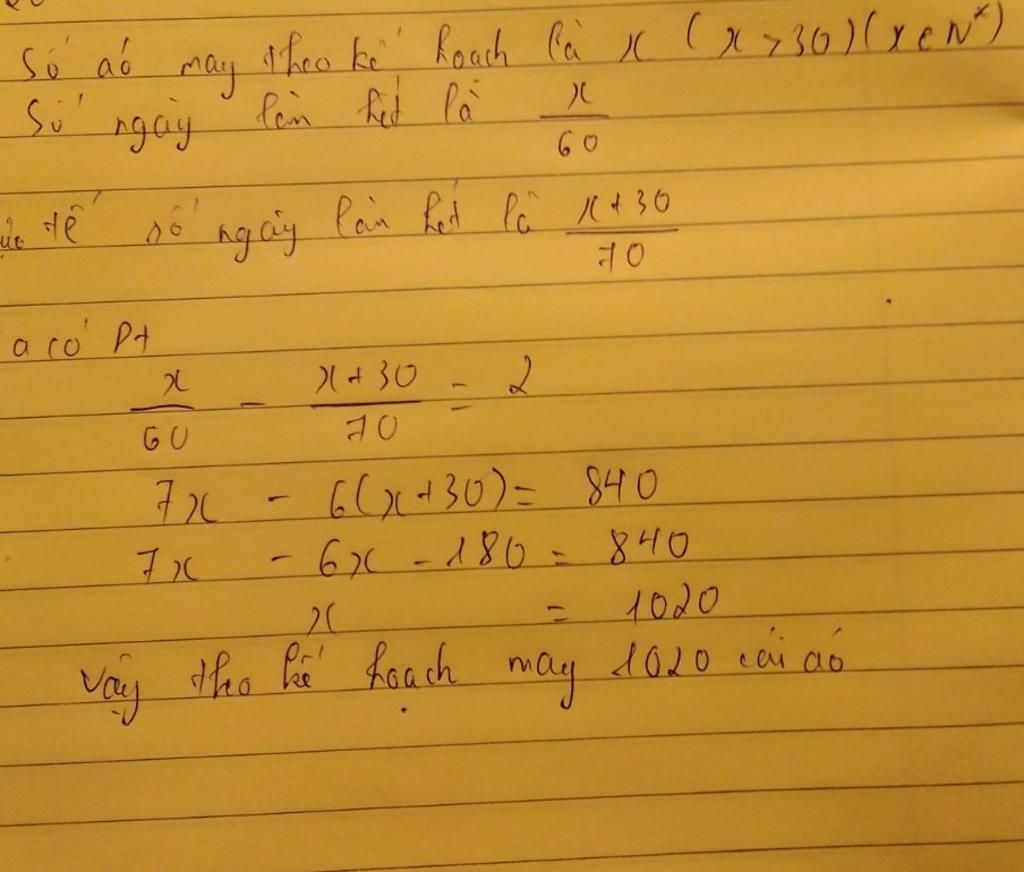 Số áo may theo kế hoạch là x (x > 30) (x ∈ N*)
Số ngày làm hết là x/60
tế số ngày làm hết là (x + 30)/70
a có Pt
x/60 - (x + 30)/70 = 2
7x - 6(x + 30) = 840
7x - 6x - 180 = 840
x = 1020
Vậy theo kế hoạch may 1020 cái áo